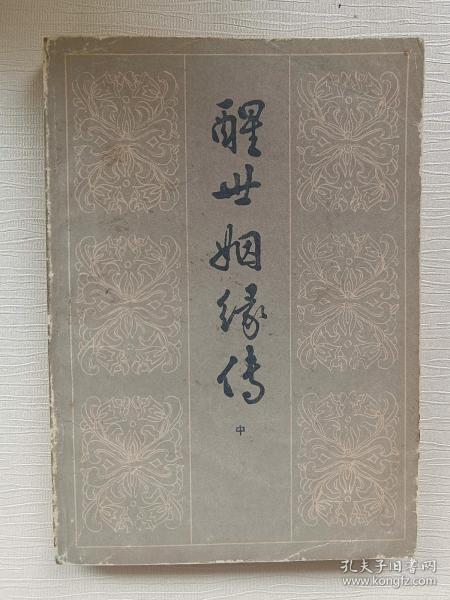 醒世姻缘传
中
孔夫子旧书网
www.kongfz.com